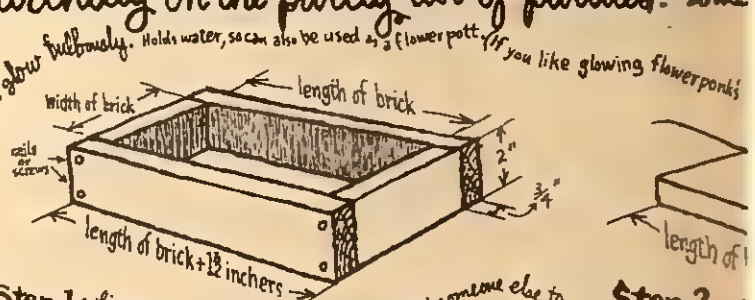 on the party
glow bulbously. Holds water, so can also be used as a flower pott. (If you like glowing flowerponks
width of brick
length of brick
nails
or
screws
2"
3/4"
length of brick + inchers
length of
Step 1
someone else to
Step 2